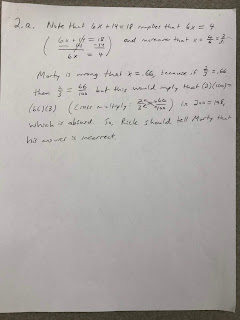 2.a. Note that 6x+14=18 implies that 6x = 4
( 6x+14 = 18 and moreover that x = 4/6 = 2/3.
-14 -14
6x = 4 )
Morty is wrong that x = .66, because if 2/3 = .66
then 2/3 = 66/100 but this would imply that (2)(100)=
(66)(3) (cross multiply: 2/3 = 66/100) so 200=198,
which is absurd. So, Rick should tell Morty that
his answer is incorrect.